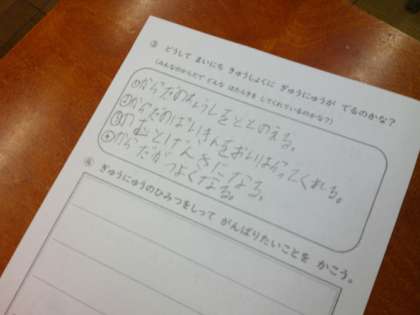 ③ どうして まいにち きゅうしょくに ぎゅうにゅうが でるのかな?
(みんなのからだで どんな はたらきを してくれているのかな?)
①からだのちょうしをととのえる。
②からだのばいきんをおいはらってくれる。
③のむとげんきになる。
④からだがつよくなる。
④ ぎゅうにゅうのひみつをしって がんばりたいことを かこう。